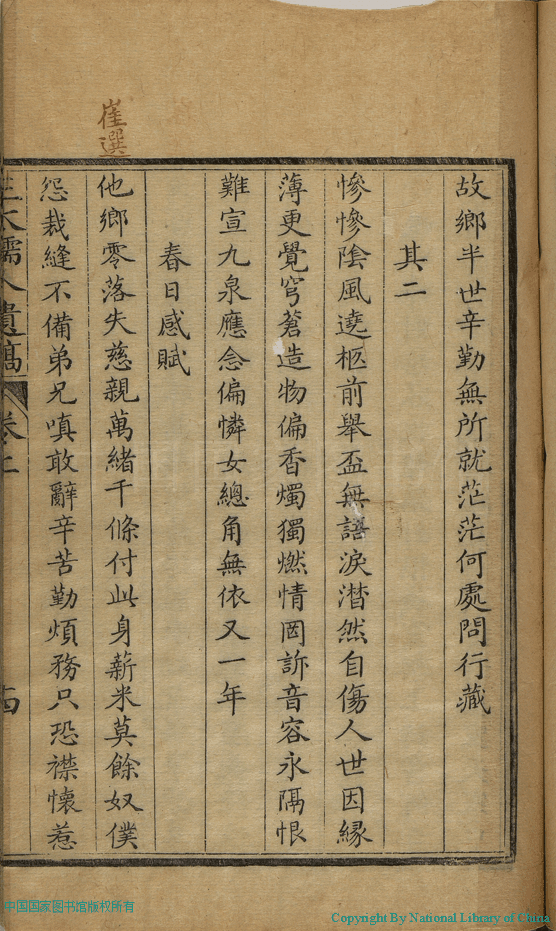 崔選
故鄉半世辛勤無所就茫茫何處問行藏
其二
慘慘陰風遶柩前舉盃無語淚潸然自傷人世因緣
薄更覺穹蒼造物偏香燭獨燃情罔訴音容永隔恨
難宣九泉應念偏憐女總角無依又一年
春日感賦
他鄉零落失慈親萬緒千條付此身薪米莫餘奴僕
怨裁縫不備弟兄嗔敢辭辛苦勤煩務只恐襟懷惹
太孺人遺稿 卷上
四
中国国家图书馆版权所有
Copyright By National Library of China